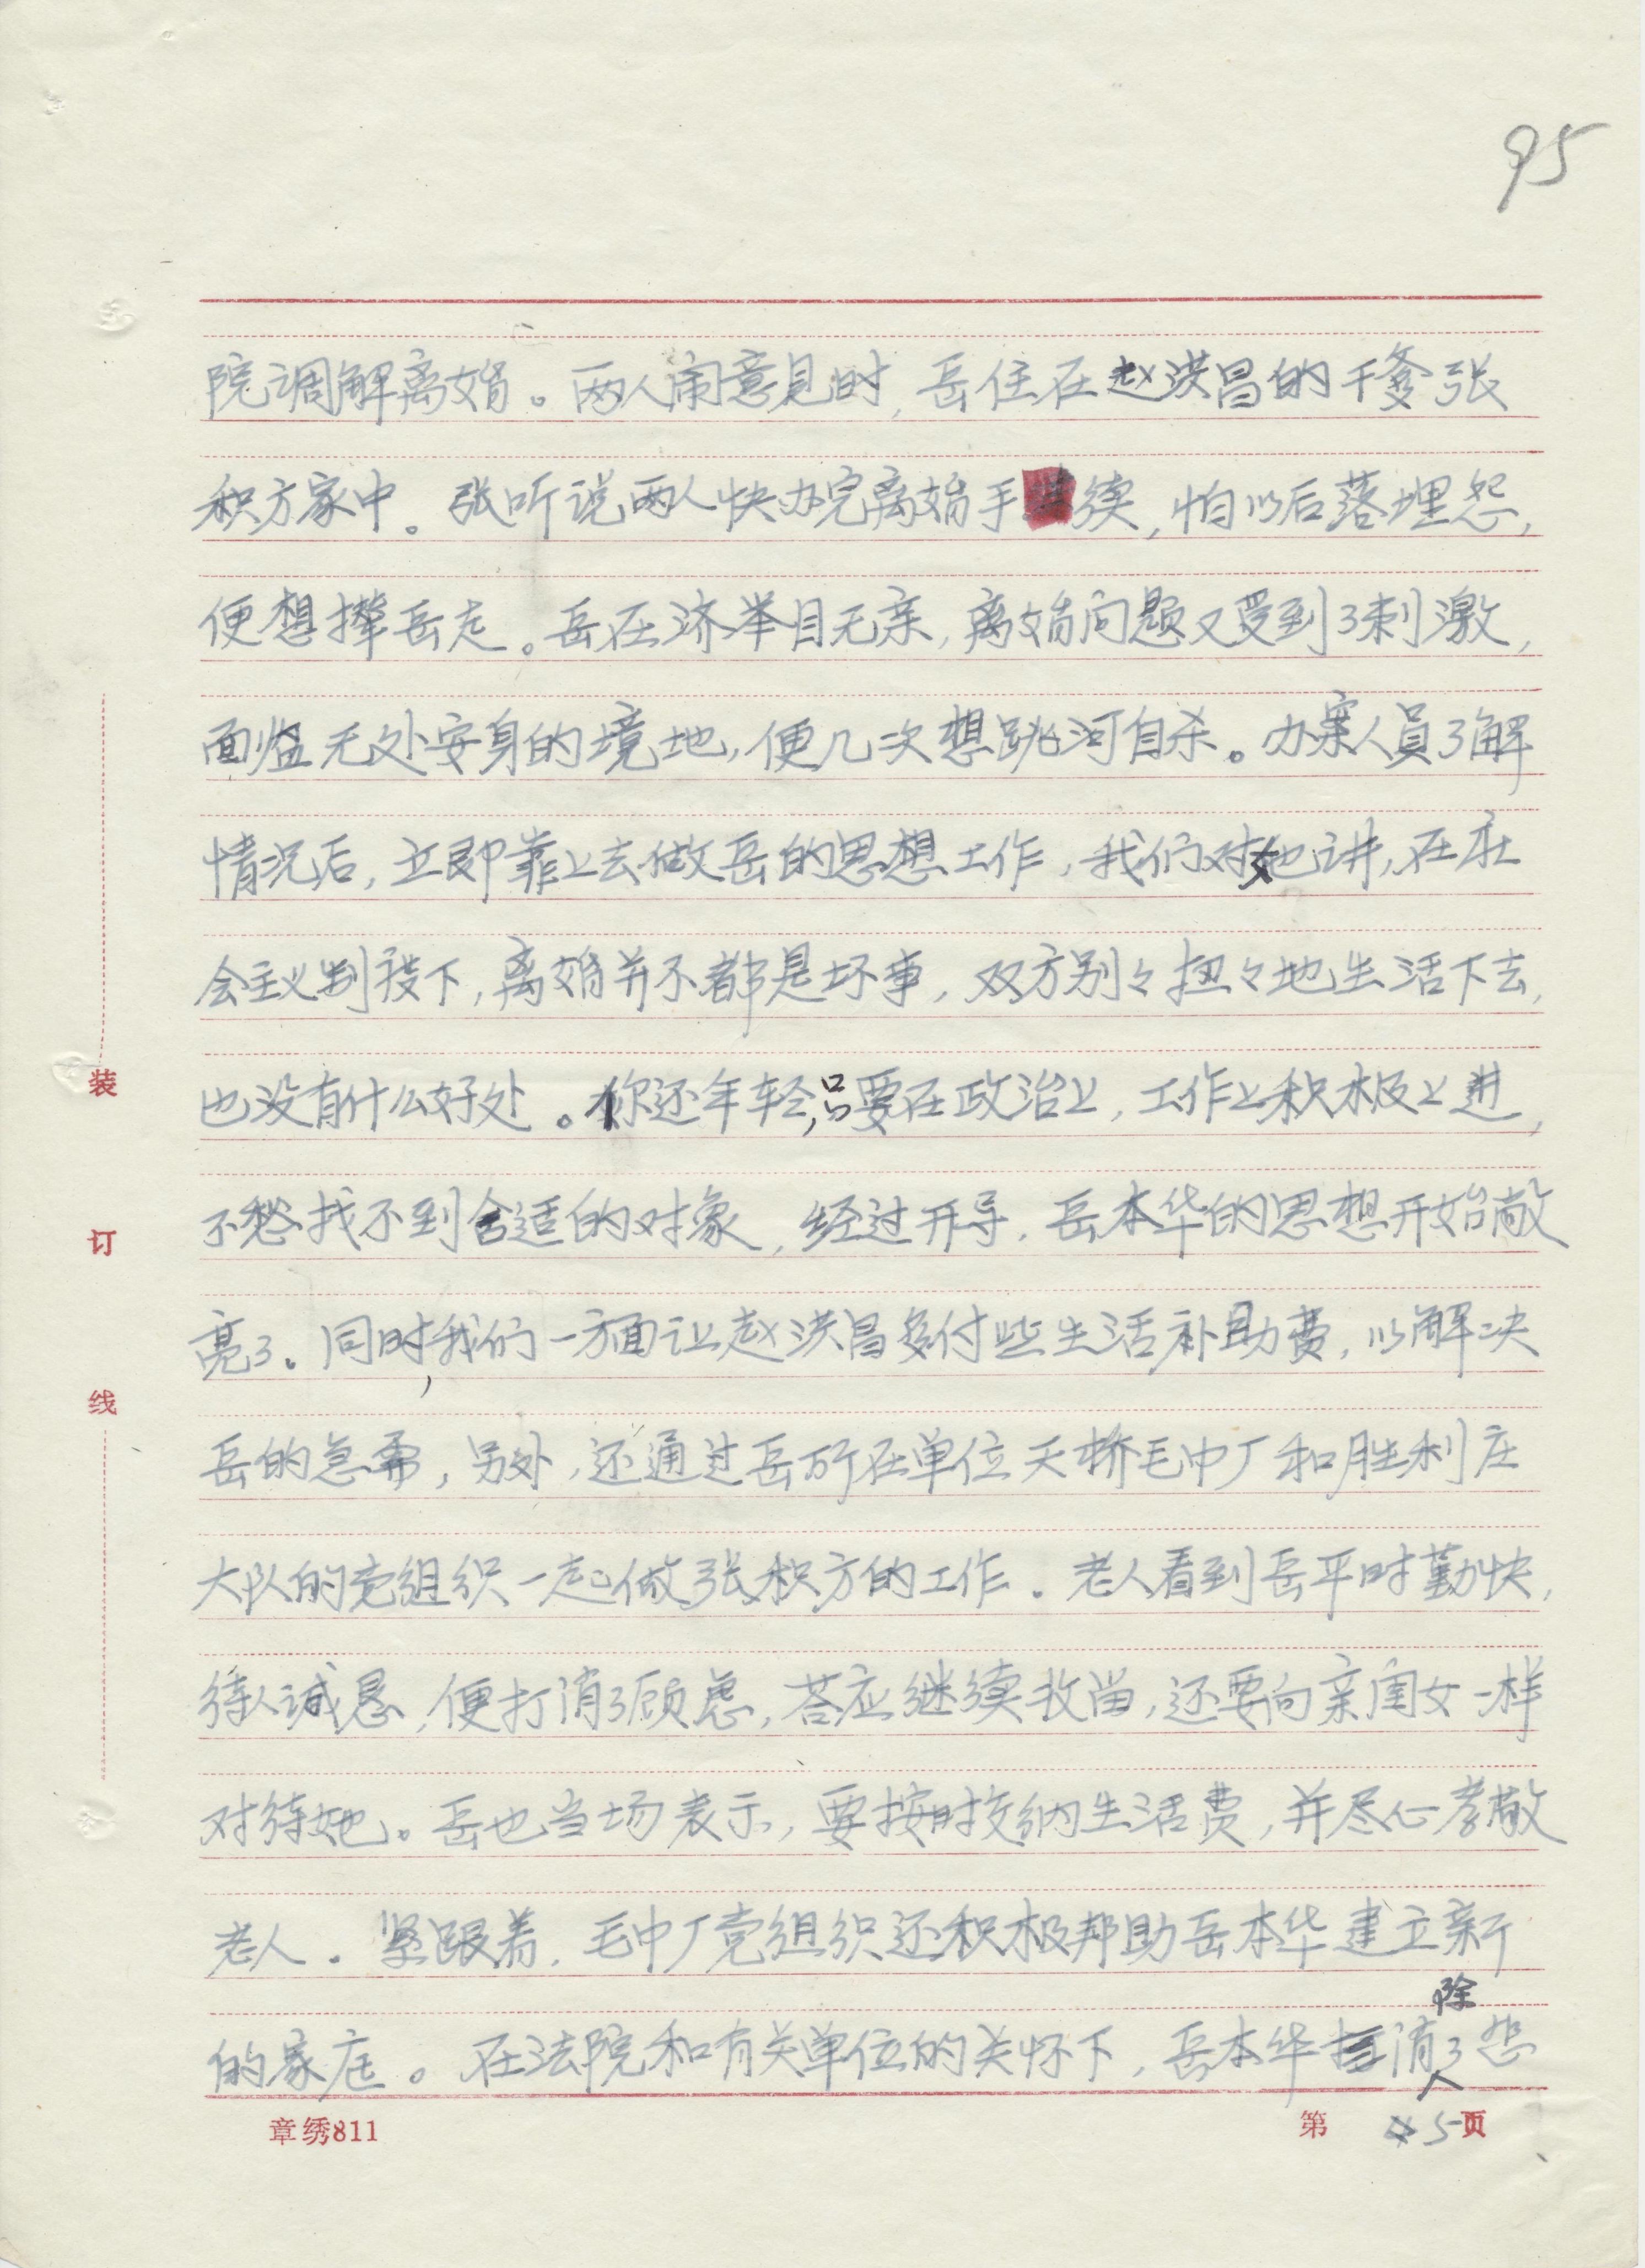 95
院调解离婚。两人闹意见时,岳住在赵洪昌的干爹张
积方家中。张听说两人快办完离婚手续,怕以后落埋怨,
便想撵岳走。岳在济举目无亲,离婚问题又受到了刺激,
面临无处安身的境地,便几次想跳河自杀。办案人员了解
情况后,立即靠上去做岳的思想工作,我们对她讲,在社
会主义制度下,离婚并不都是坏事,双方别々扭々地生活下去,
也没有什么好处。你还年轻,只要在政治上,工作上积极上进,
不愁找不到合适的对象,经过开导,岳本华的思想开始敞
亮了。同时,我们一方面让赵洪昌多付些生活补助费,以解决
岳的急需,另外,还通过岳所在单位天桥毛巾厂和胜利庄
大队的党组织一起做张积方的工作。老人看到岳平时勤快,
待人诚恳,便打消了顾虑,答应继续收留,还要向亲闺女一样
对待她。岳也当场表示,要按时交纳生活费,并尽心孝敬
老人。紧跟着,毛巾厂党组织还积极邦助岳本华建立新
的家庭。在法院和有关单位的关怀下,岳本华消除了怨
装
订
线
章绣811
第5页